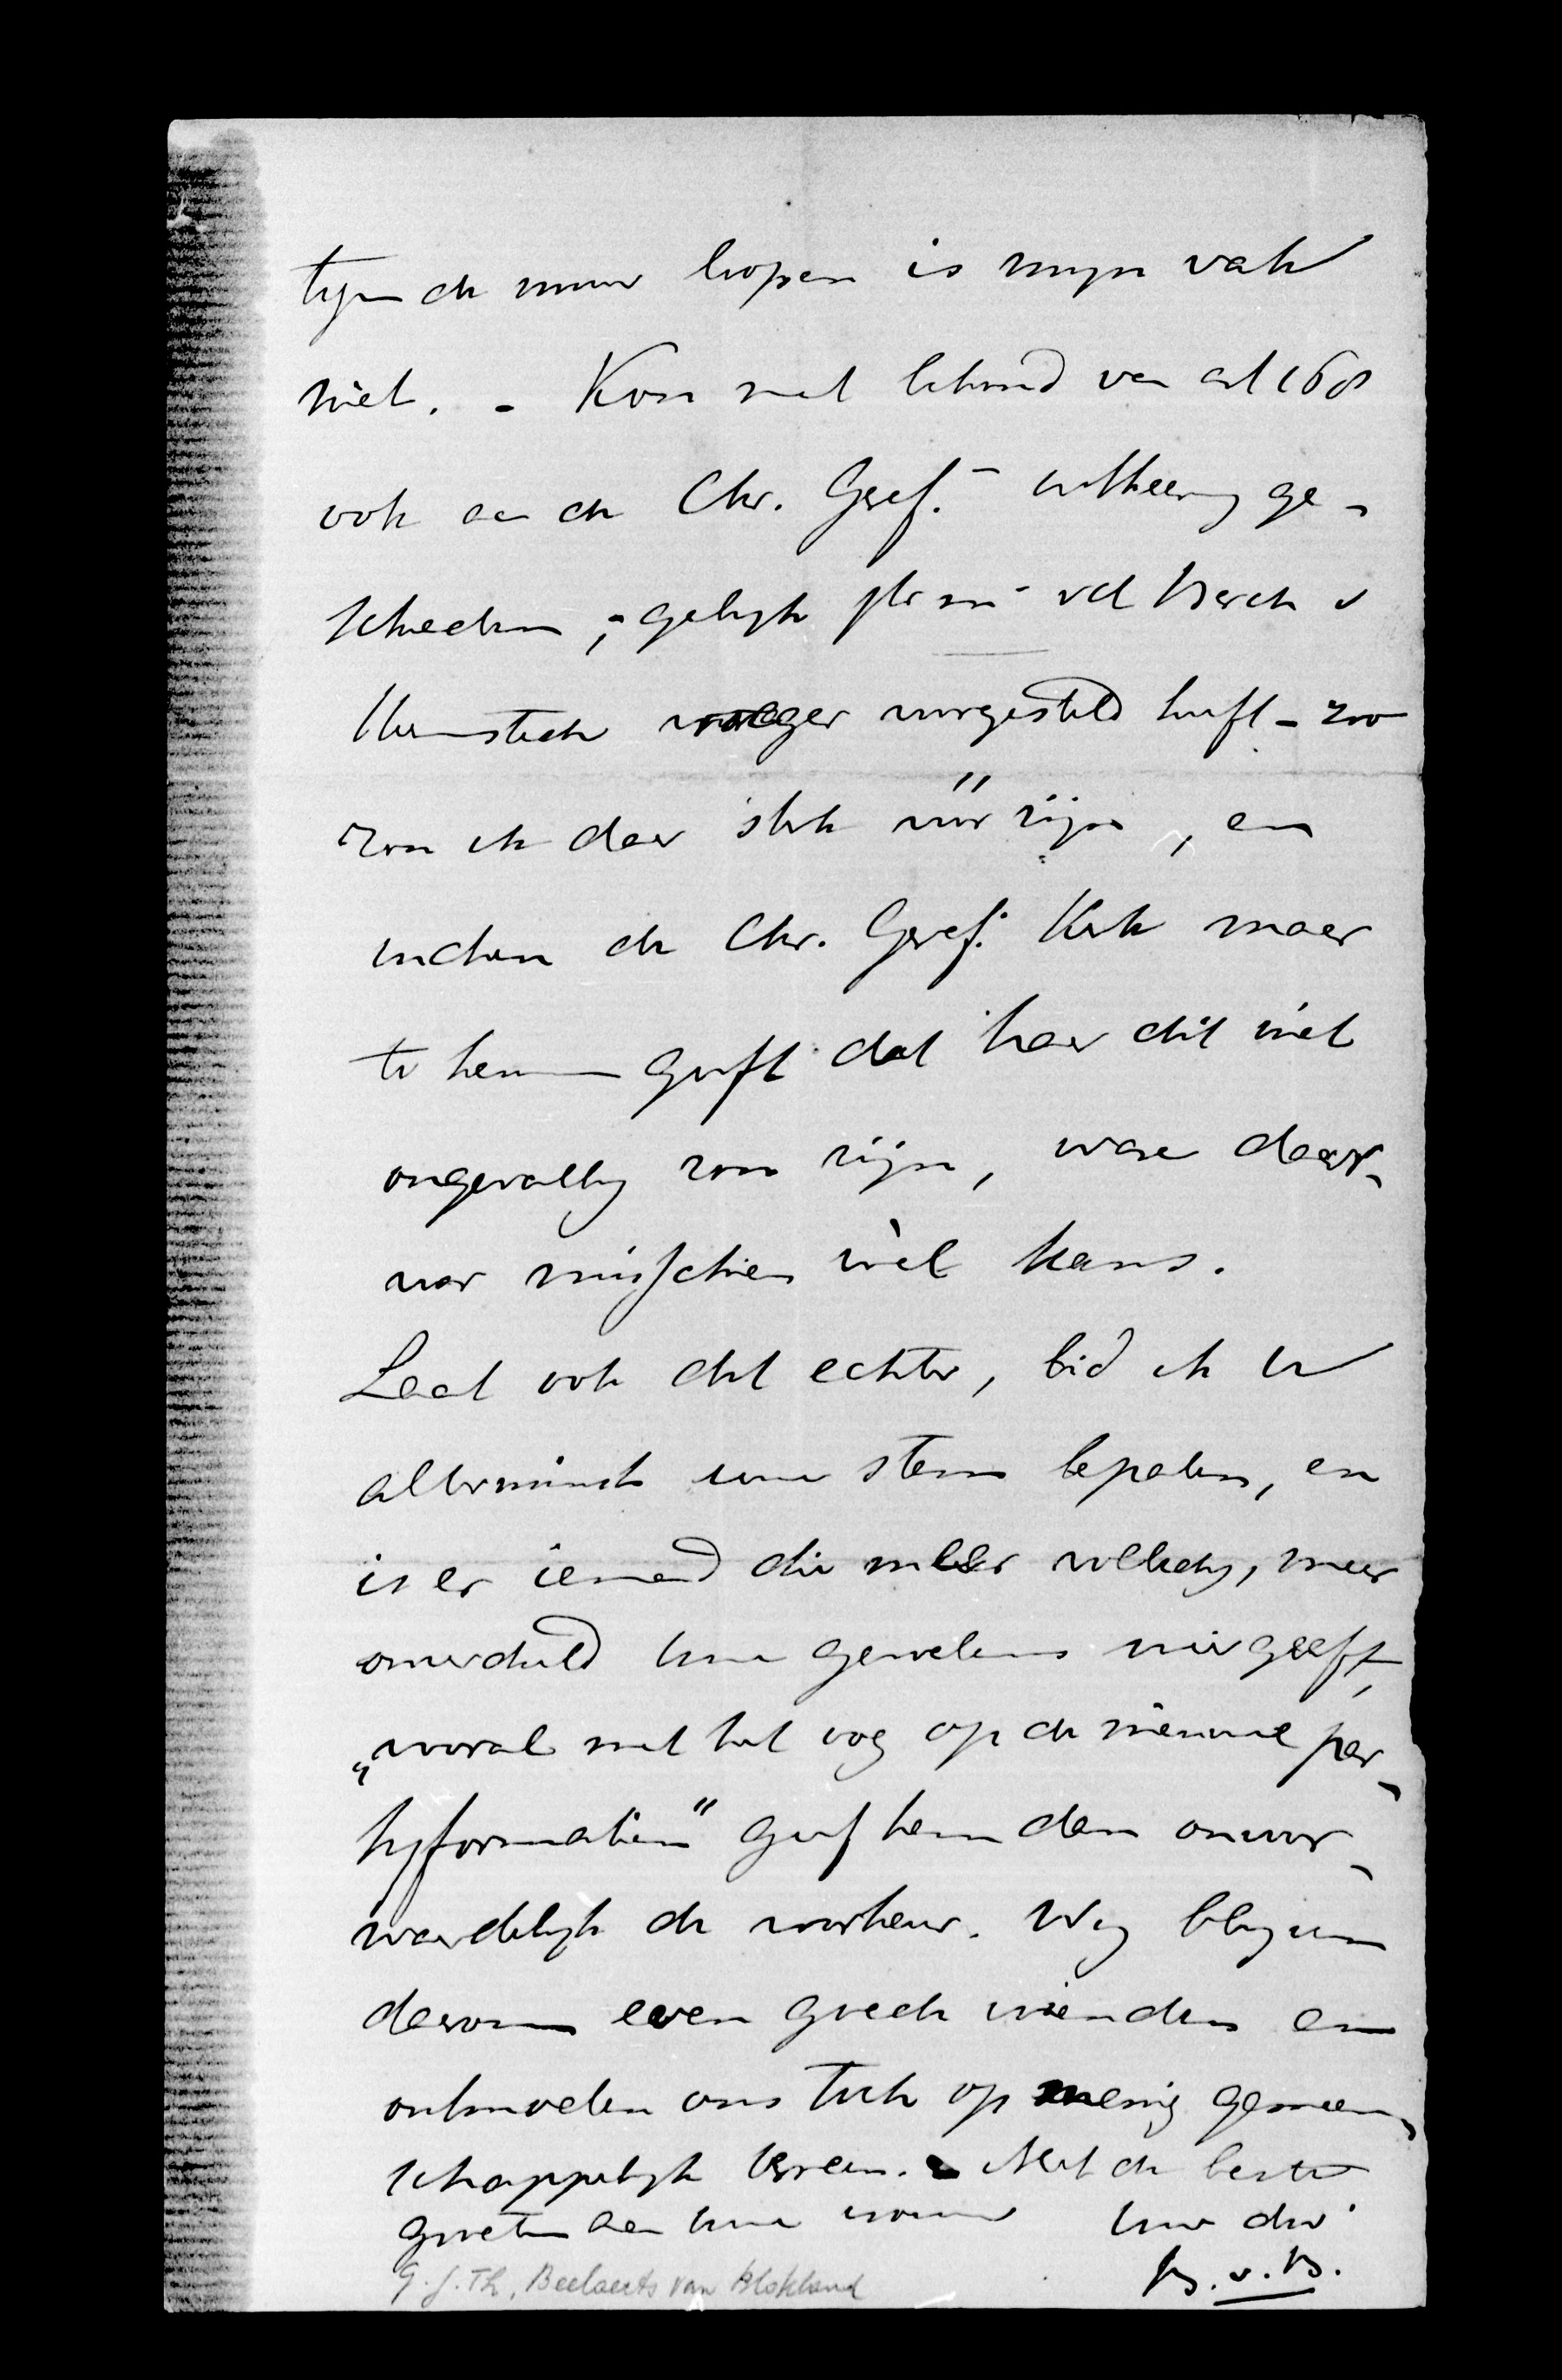 tegen de muur loopen is mijn vak
niet. - Kon met behoud van art 168
ook aan de Chr. Geref. uitkeering ge-
schieden, gelijk vd Berch v
Heemstede vroeger voorgesteld heeft - zoo
zou ik daar sterk vóór zijn, en
indien de Chr. Geref. Kerk maar
te kennen geeft dat haar dit niet
ongevallig zou zijn, ware daar-
voor misschien wèl kans.
Laat ook dit echter, bid ik U
allerminst uwe stem bepalen, en
is er iemand die meer volledig, meer
onverdeeld uwe gevoelens weergeeft,
"vooral met het oog op de nieuwe par-
tijformatiën" geef hem dan onvoor-
waardelijk de voorkeur. Wij blijven
daarom even goede vrienden en
ontmoeten ons toch op menig gemeen-
schappelijk terrein. - Met de beste
groeten aan uwe vrouw Uw dw
B. v. B.
G.J.Th. Beelaerts van Blokland